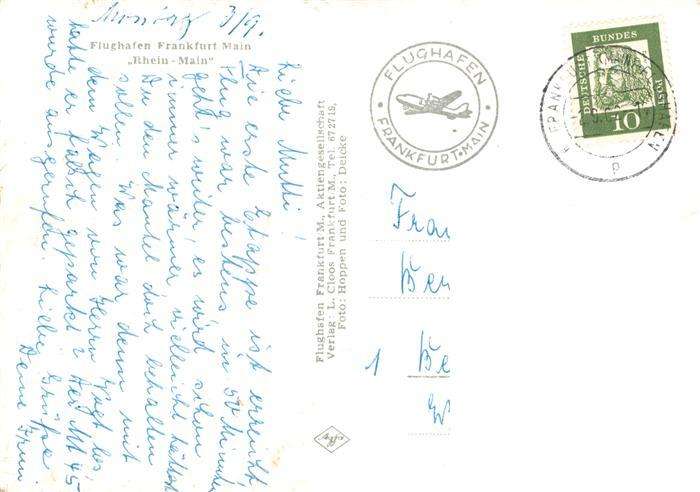 Monsieur 3/9.
Flughafen Frankfurt Main
„Rhein-Main“
Liebe Mutti!
Die erste Etappe ist erreicht,
Flug war bestens in 50 Minuten
geht's weiter, es wird schon
immer wärmer, vielleicht hättest
Du den Mantel doch behalten
sollen. Was war denn mit
dem Wagen von Herrn
hatte er falsch geparkt?
wurde ausgerufen. Liebe Grüße
Deine
Flughafen Frankfurt M., Aktiengesellschaft
Verlag: L. Cloos Frankfurt M., Tel. 672719,
Foto: Hoppen und Foto: Deicke
FLUGHAFEN
FRANKFURT-MAIN
DEUTSCHE
BUNDES
POST
10
Frau
Ber
1 Be